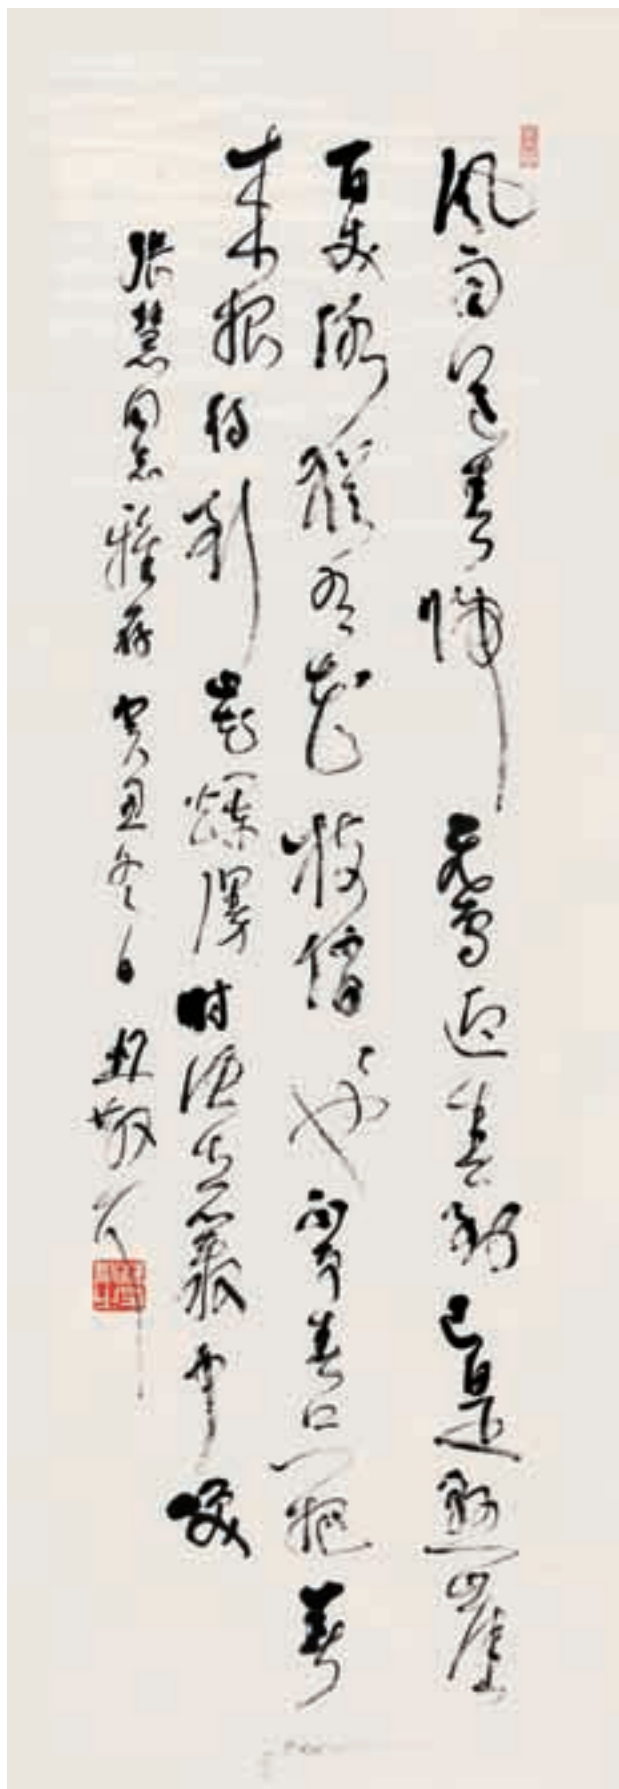 风雨送春歸飛雪迎春到已是懸崖
百丈冰猶有花枝俏俏也不爭春只把春
来報待到山花爛漫时她在叢中笑
張慧同志雅存癸丑冬日林散耳